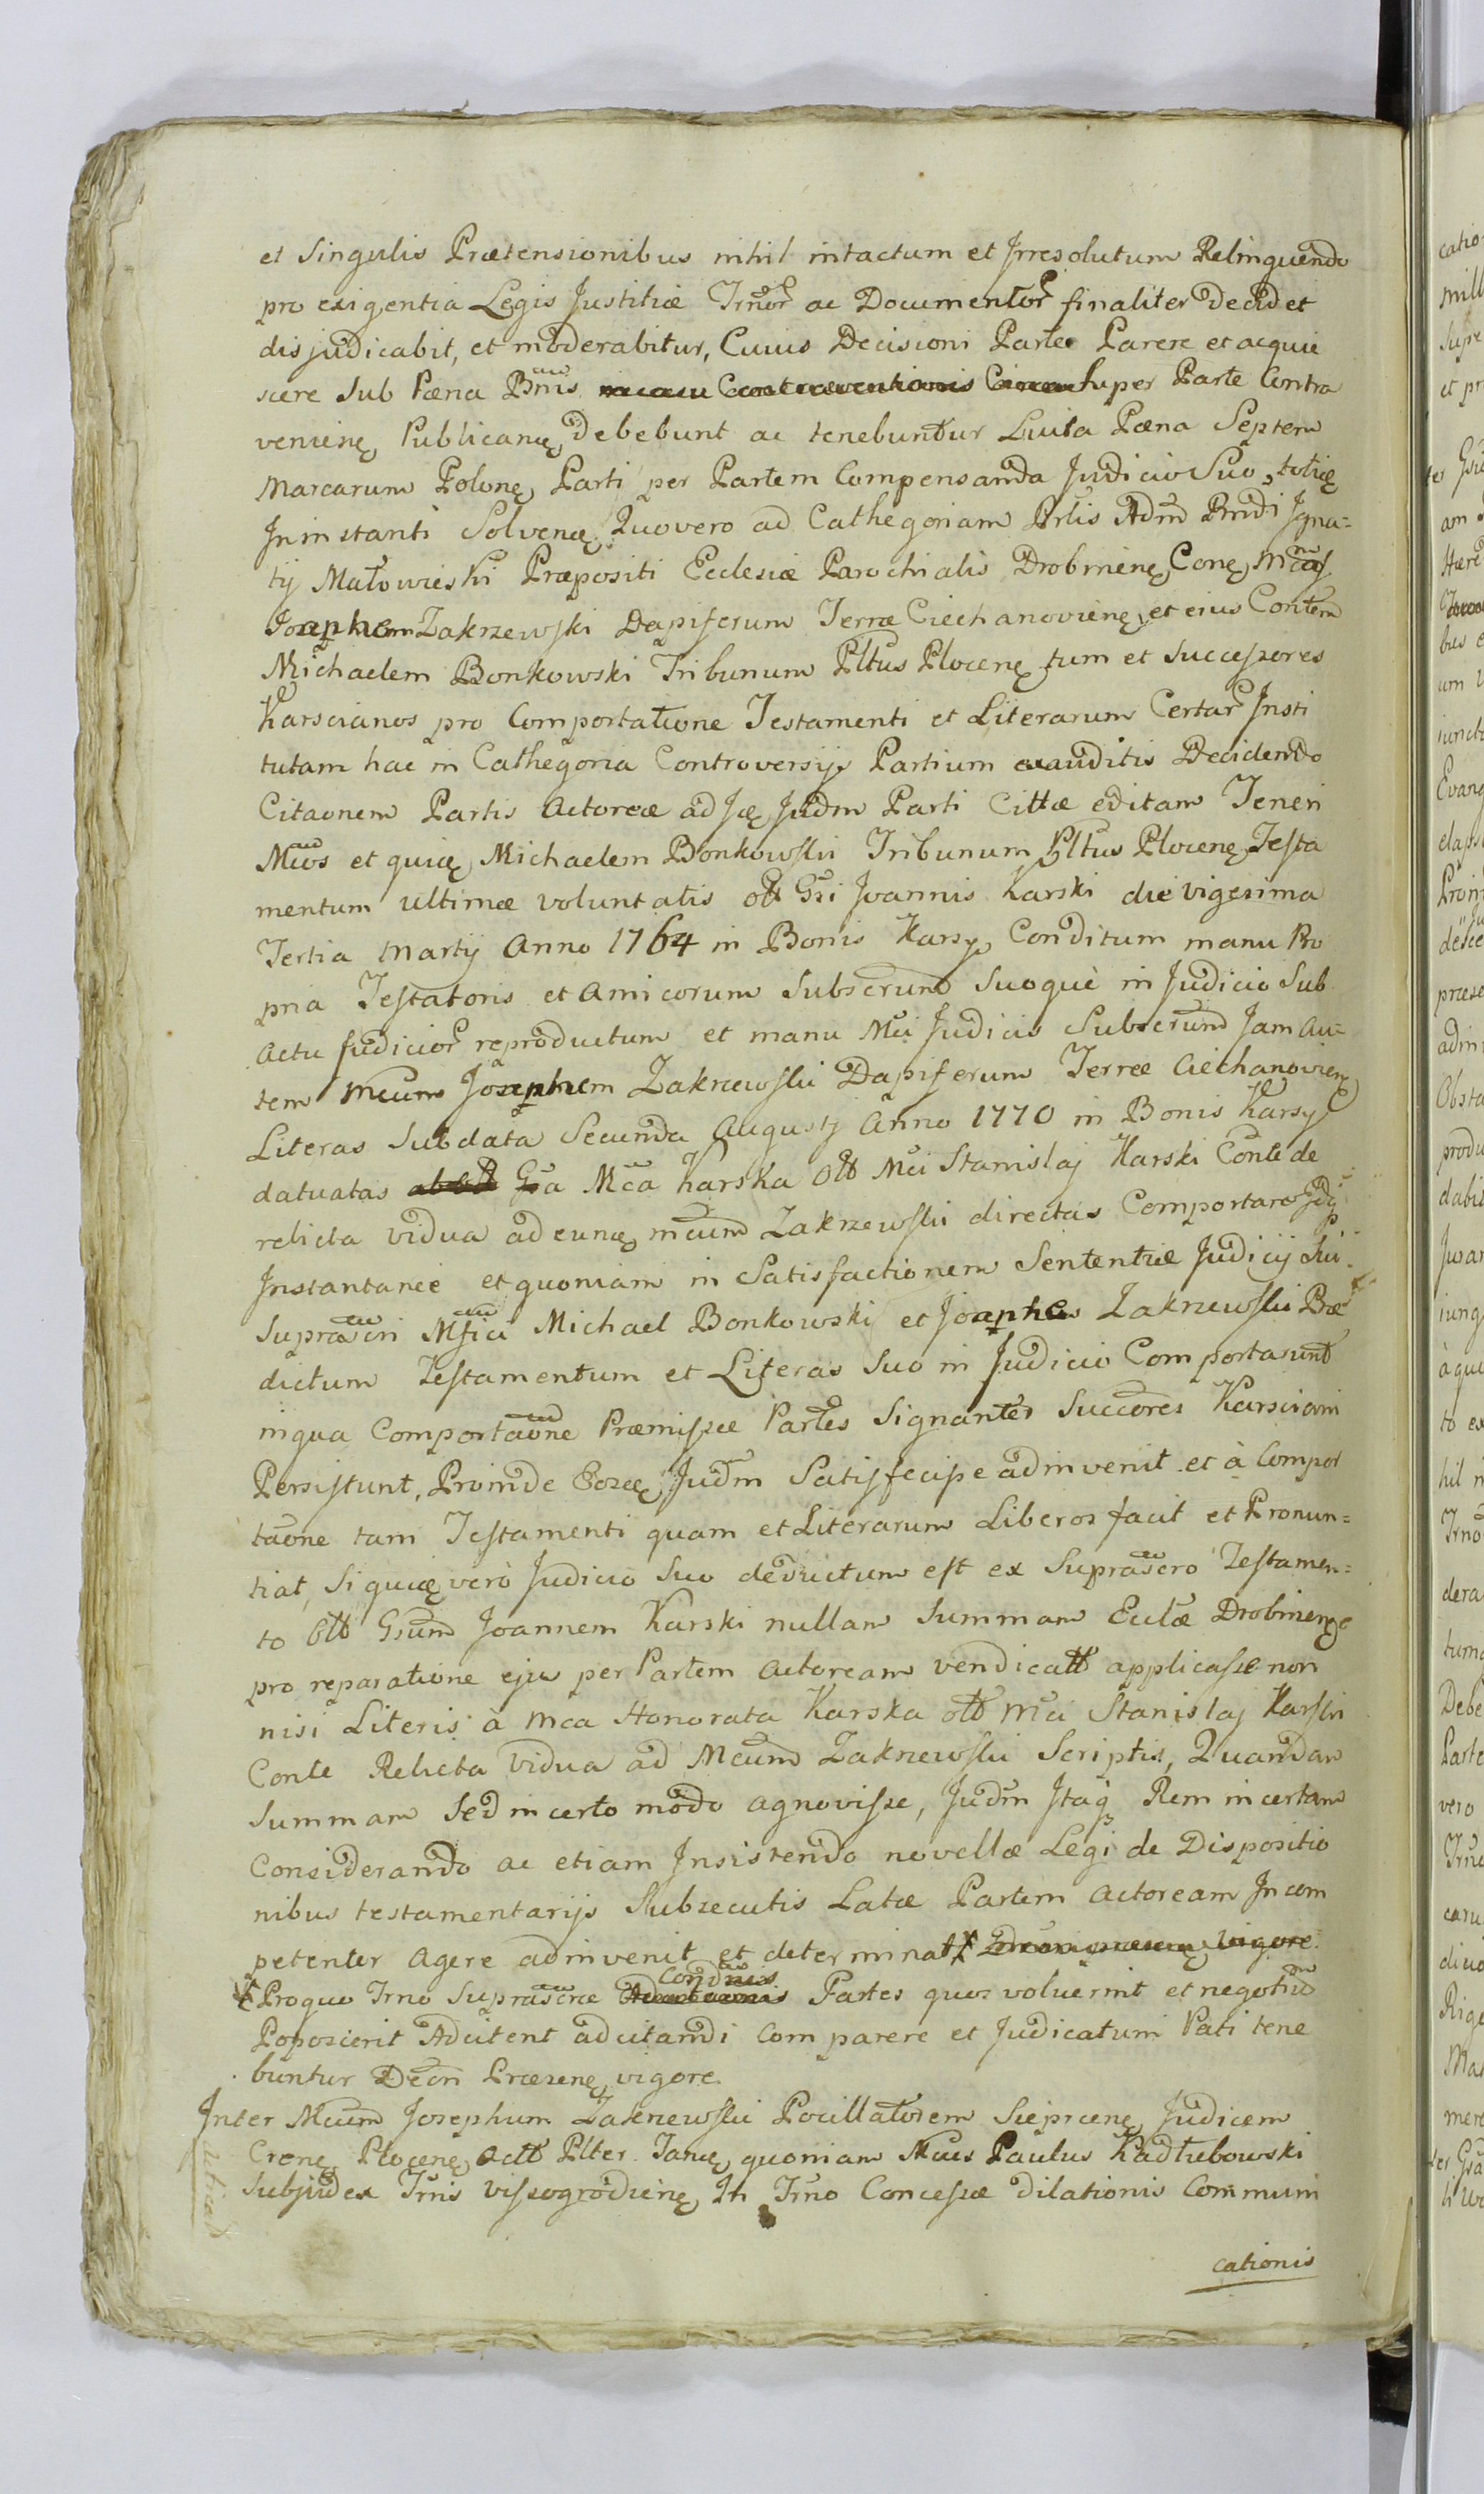 et Singulis Prætensionibus nihil intactum et Jrresolutum Relinquendo
pro exigentia Legis Justitiæ Trnor ac Documentor finaliter Decidet
disjudicabit, et moderabitur, Cuius Decisioni Partes Parere et acquie
scere Sub Pæna Bnis Super Parte Contra
venienę Publicanę Debebunt ac tenebuntur Luita Pæna Septem
Marcarum Polonę Parti per Partem Compensanda Judicio Suo, totię
Jninstanti Solvenę, Quovero ad Cathegoriam Prtis Adm Rndi Jgna=
tij Małowieski Præpositi Ecclesiæ Parochialis Drobninenę Conę
Josephem Zakrzewski Dapiferum Terræ Ciechanovienę, et eius Contem
Michaelem Bonkowski Tribunum Pltus Plocenę tum et Successores
Karscianos pro Comportatione Testamenti et Literarum Certar Jnsti
tutam hac in Cathegoria Controversijs Partium exauditis Decidendo
Citaonem Partis Actoreæ ad Judm Parti Cittæ editam Teneri
Mcos et quię Michaelem Bonkowski Tribunum Pltus Plocenę Testa
mentum ultimæ voluntatis olt Gsi Joannis Karski die vigesima
Tertia Martij Anno 1764 in Bonis Karsy Conditum manu Pro
pria Testatoris et Amicorum Subscrund Suoquè in Judicio Sub
Actu Judicior reproductum et manu Mci Judicis Subscrund Jam Au=
tem Mcum Josephem Zakrzewski Dapiferum Terræ Ciechanovienę
Literas Subdata Secunda Augusti Anno 1770 in Bonis Karsy
datuatas ab olt Gsa Mca Karska Olt Mci Stanislaj Karski Conte de
relicta vidua ad eunę mcum Zakrzewski directas Comportare
Jnstantanee et quoniam in Satisfactionem Sententiæ Judicij Sui
Suprascri Mfici Michael Bonkowski et Josephus Zakrzewski Præ
dictum Testamentum et Literas Suo in Judicio Comportarunt
inqua Comportaone Præmissæ Partes Signanter Succores Karsciani
Persistunt, Proinde Eosę Judm Satisfecisse adinvenit et à Compor
taone tam Testamenti quam et Literarum Liberos facit et Pronun=
tiat, Siquię verò Judicio Suo deductum est ex Suprascro Testamen=
to Olt Gsum Joannem Karski nullam Summam Ecclæ Drobninenę
pro reparatione ejus per Partem Actoream vendicatt applicasse non
nisi Literis à Mca Honorata Karska olt Mci Stanislaj Karski
Conte Relicta Vidua ad Mcum Zakrzewski Scriptis, Quandam
Summam Sed incerto modo agnovisse, Judm Jtaq Rem incertam
Considerando ac etiam Jnsistendo novellæ Legi de Dispositio
nibus testamentarijs Subsecutis Latæ Partem Actoream Jncom
petenter Agere adinvenit et determinatt Decri præsenę vigore
Proquo Trno Suprascræ Condnis Partes quos voluerint et negotiu
Poposcerit Adcitent adcitandi Comparere et Judicatum Pati tene
buntur Decri Præsenę vigore
Jnter Mcum Josephum Zakrzewski Pocillatorem Sieprcenę Judicem
Crenę Plocenę Actt Plter Tanę quoniam Mcus Paulus Kadłubowski
Subjudex Trnis vissogrodienę Jn Trno Concessæ Dilationis Communi
cationis